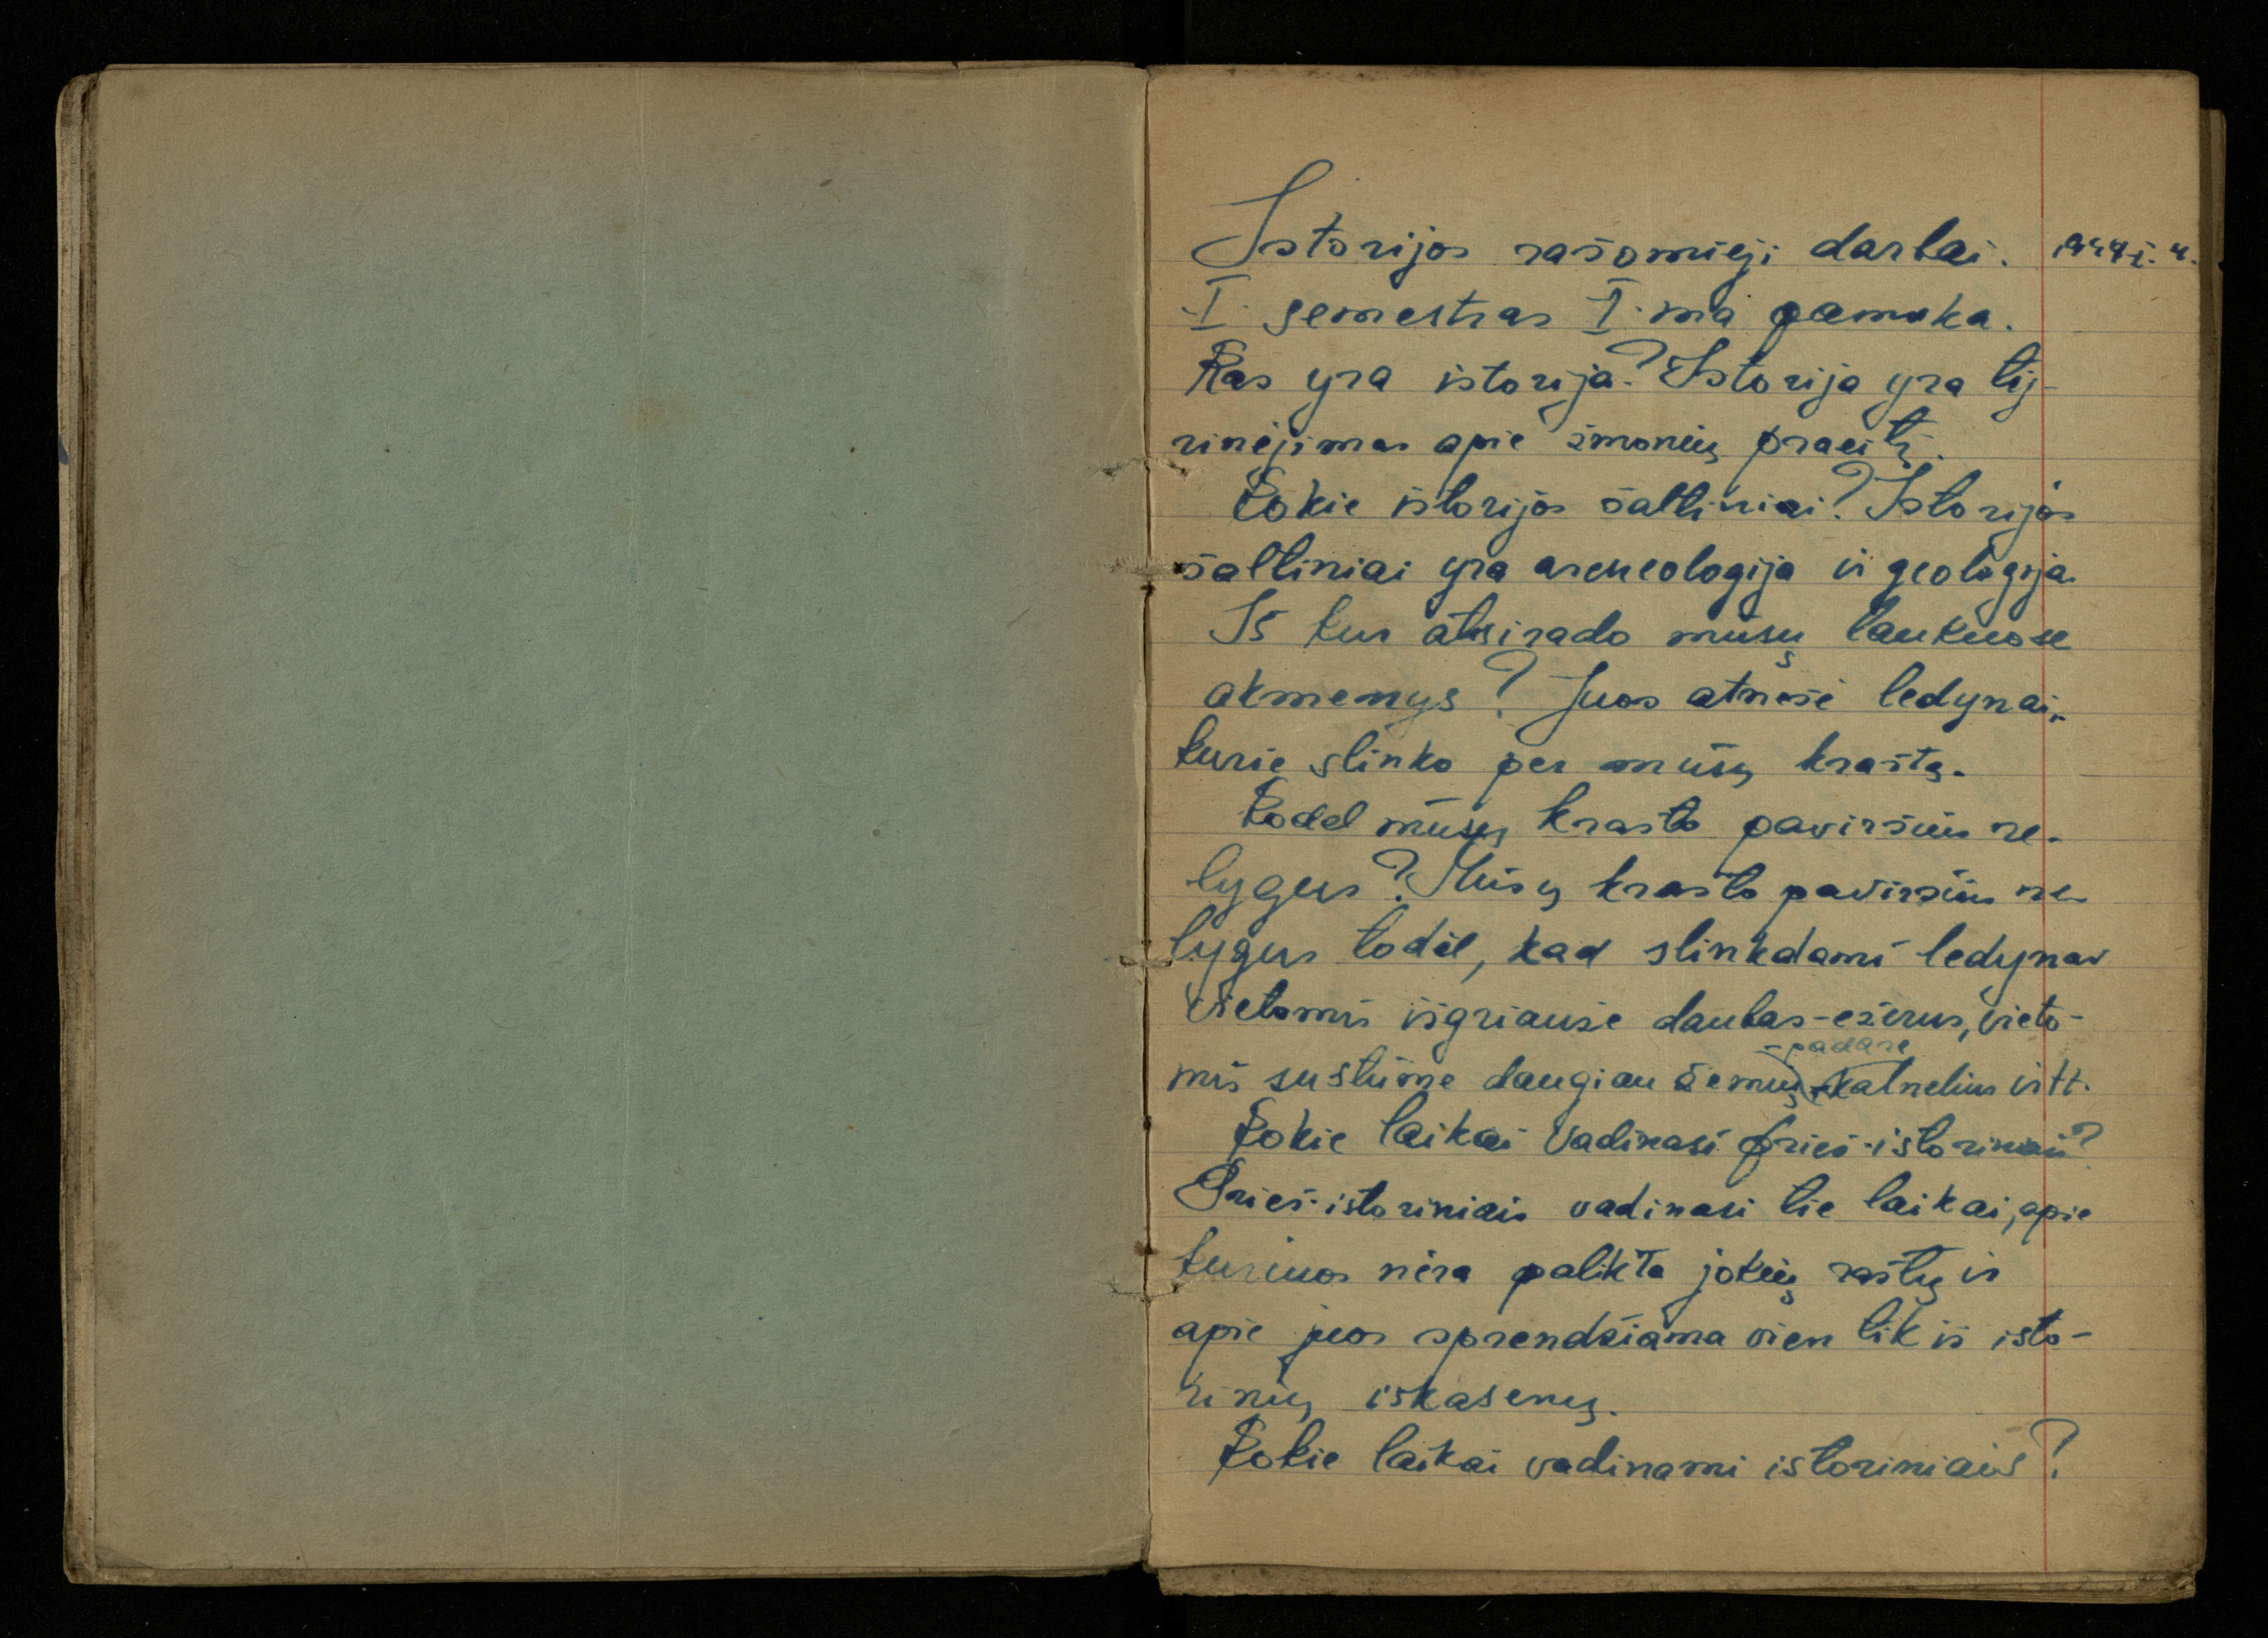 Istorijos rašomieji darbai.
I semestras I-ma pamoka.
Kas yra istorija? Istorija yra tij-
rinėjimas apie žmonių praeitį.
Kokie istorijos šaltiniai? Istorijos
šaltiniai yra archeologija ir geologija.
Iš kur atsirado mūsų laukuose
akmenys? Juos atnešė ledynai,
kurie slinko per mūsų kraštą.
Kodėl mūsų krašto paviršius ne-
lygus? Mūsų krašto paviršius ne-
lygus todėl, kad slinkdami ledynai
vietomis išgriaužė daubas-ežerus, vieto-
-padarė
mis sustūmė daugiau žemių kalnelius ir tt.
Kokie laikai vadinasi prieš-istoriniai?
Prieš-istoriniais vadinasi tie laikai, apie
kuriuos nėra palikta jokių raštų ir
apie juos sprendžiama vien tik iš isto-
rinių iškasenų.
Kokie laikai vadinami istoriniais?